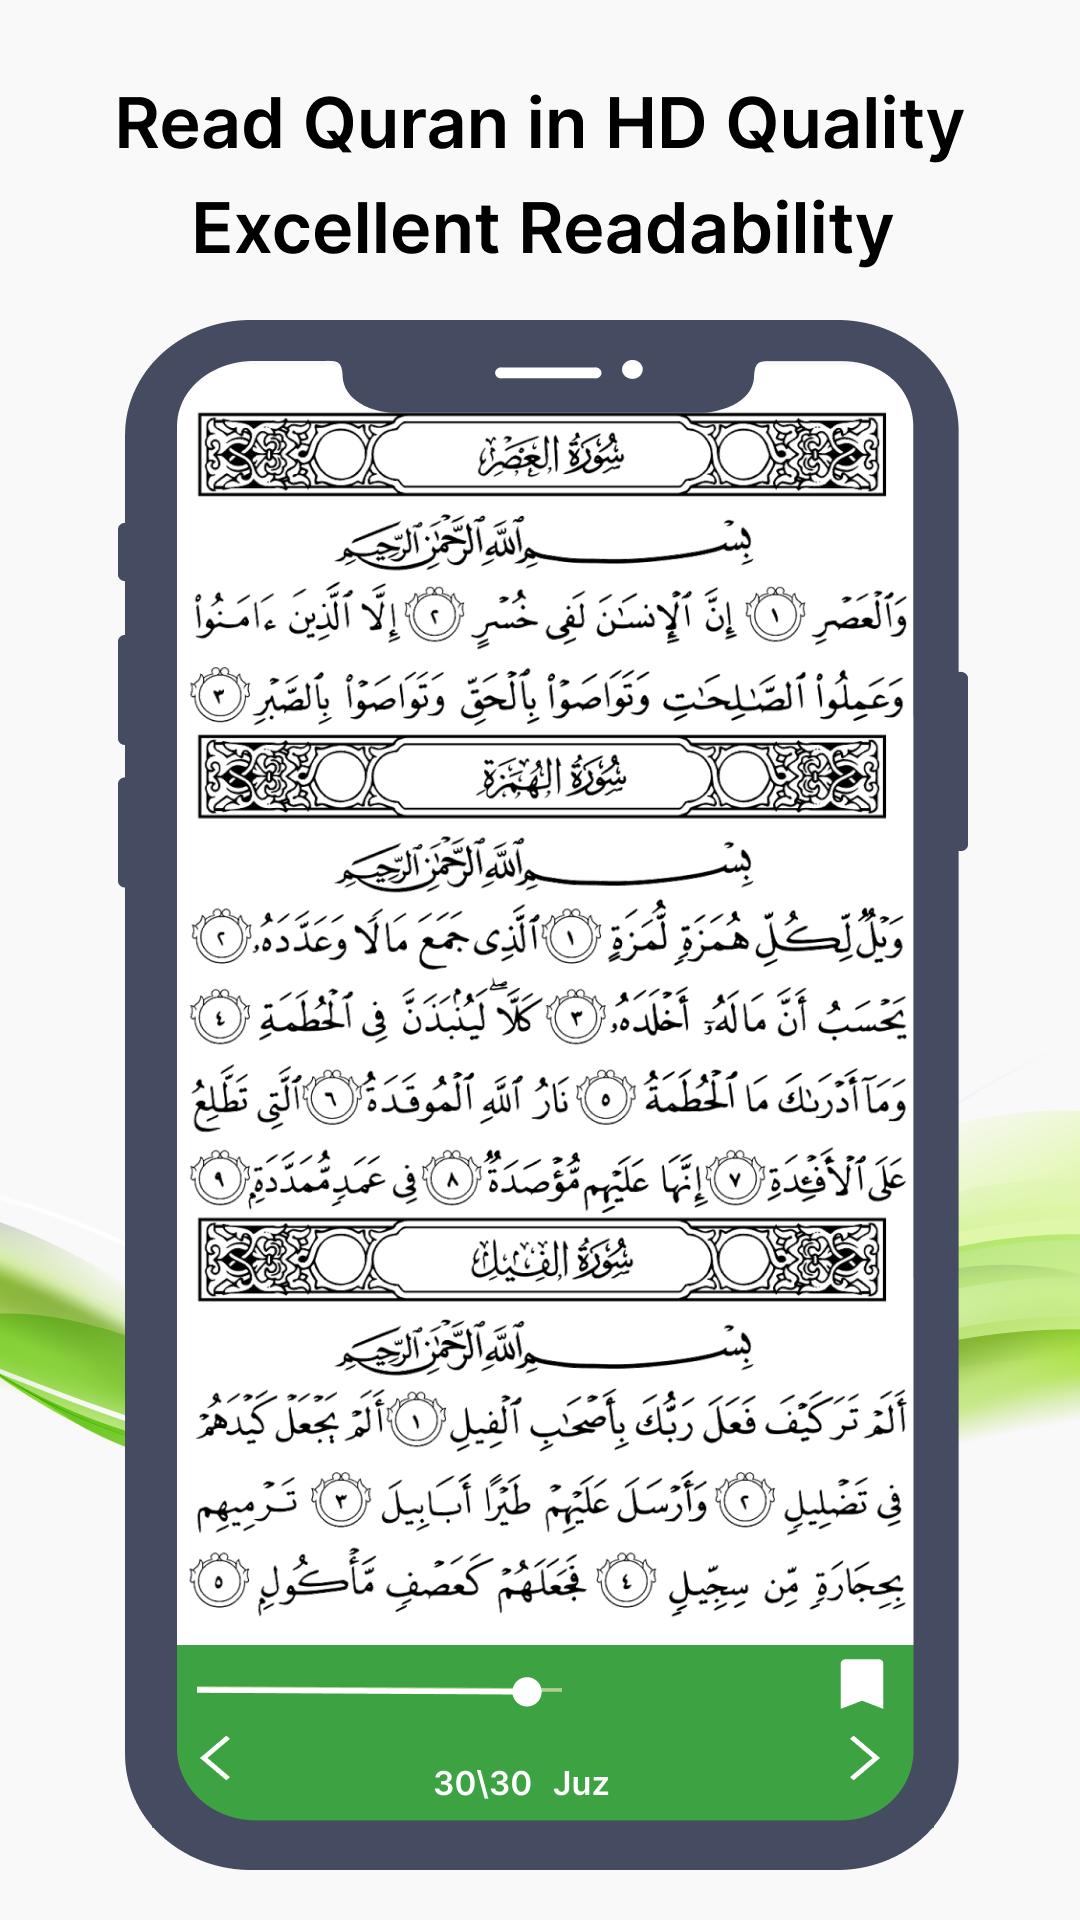 Read Quran in HD Quality
Excellent Readability
سُورَةُ العَصْرِ
بِسْمِ ٱللَّهِ ٱلرَّحْمَٰنِ ٱلرَّحِيمِ
وَٱلْعَصْرِ ١ إِنَّ ٱلْإِنسَٰنَ لَفِى خُسْرٍ ٢ إِلَّا ٱلَّذِينَ ءَامَنُوا۟
وَعَمِلُوا۟ ٱلصَّٰلِحَٰتِ وَتَوَاصَوْا۟ بِٱلْحَقِّ وَتَوَاصَوْا۟ بِٱلصَّبْرِ ٣
سُورَةُ الهُمَزَةِ
بِسْمِ ٱللَّهِ ٱلرَّحْمَٰنِ ٱلرَّحِيمِ
وَيْلٌ لِّكُلِّ هُمَزَةٍ لُّمَزَةٍ ١ ٱلَّذِى جَمَعَ مَالًا وَعَدَّدَهُۥ ٢
يَحْسَبُ أَنَّ مَالَهُۥٓ أَخْلَدَهُۥ ٣ كَلَّا ۖ لَيُنۢبَذَنَّ فِى ٱلْحُطَمَةِ ٤
وَمَآ أَدْرَىٰكَ مَا ٱلْحُطَمَةُ ٥ نَارُ ٱللَّهِ ٱلْمُوقَدَةُ ٦ ٱلَّتِى تَطَّلِعُ
عَلَى ٱلْأَفْـِٔدَةِ ٧ إِنَّهَا عَلَيْهِم مُّؤْصَدَةٌ ٨ فِى عَمَدٍ مُّمَدَّدَةٍۭ ٩
سُورَةُ الفِيلِ
بِسْمِ ٱللَّهِ ٱلرَّحْمَٰنِ ٱلرَّحِيمِ
أَلَمْ تَرَ كَيْفَ فَعَلَ رَبُّكَ بِأَصْحَٰبِ ٱلْفِيلِ ١ أَلَمْ يَجْعَلْ كَيْدَهُمْ
فِى تَضْلِيلٍ ٢ وَأَرْسَلَ عَلَيْهِمْ طَيْرًا أَبَابِيلَ ٣ تَرْمِيهِم
بِحِجَارَةٍ مِّن سِجِّيلٍ ٤ فَجَعَلَهُمْ كَعَصْفٍ مَّأْكُولٍۭ ٥
30\30 Juz